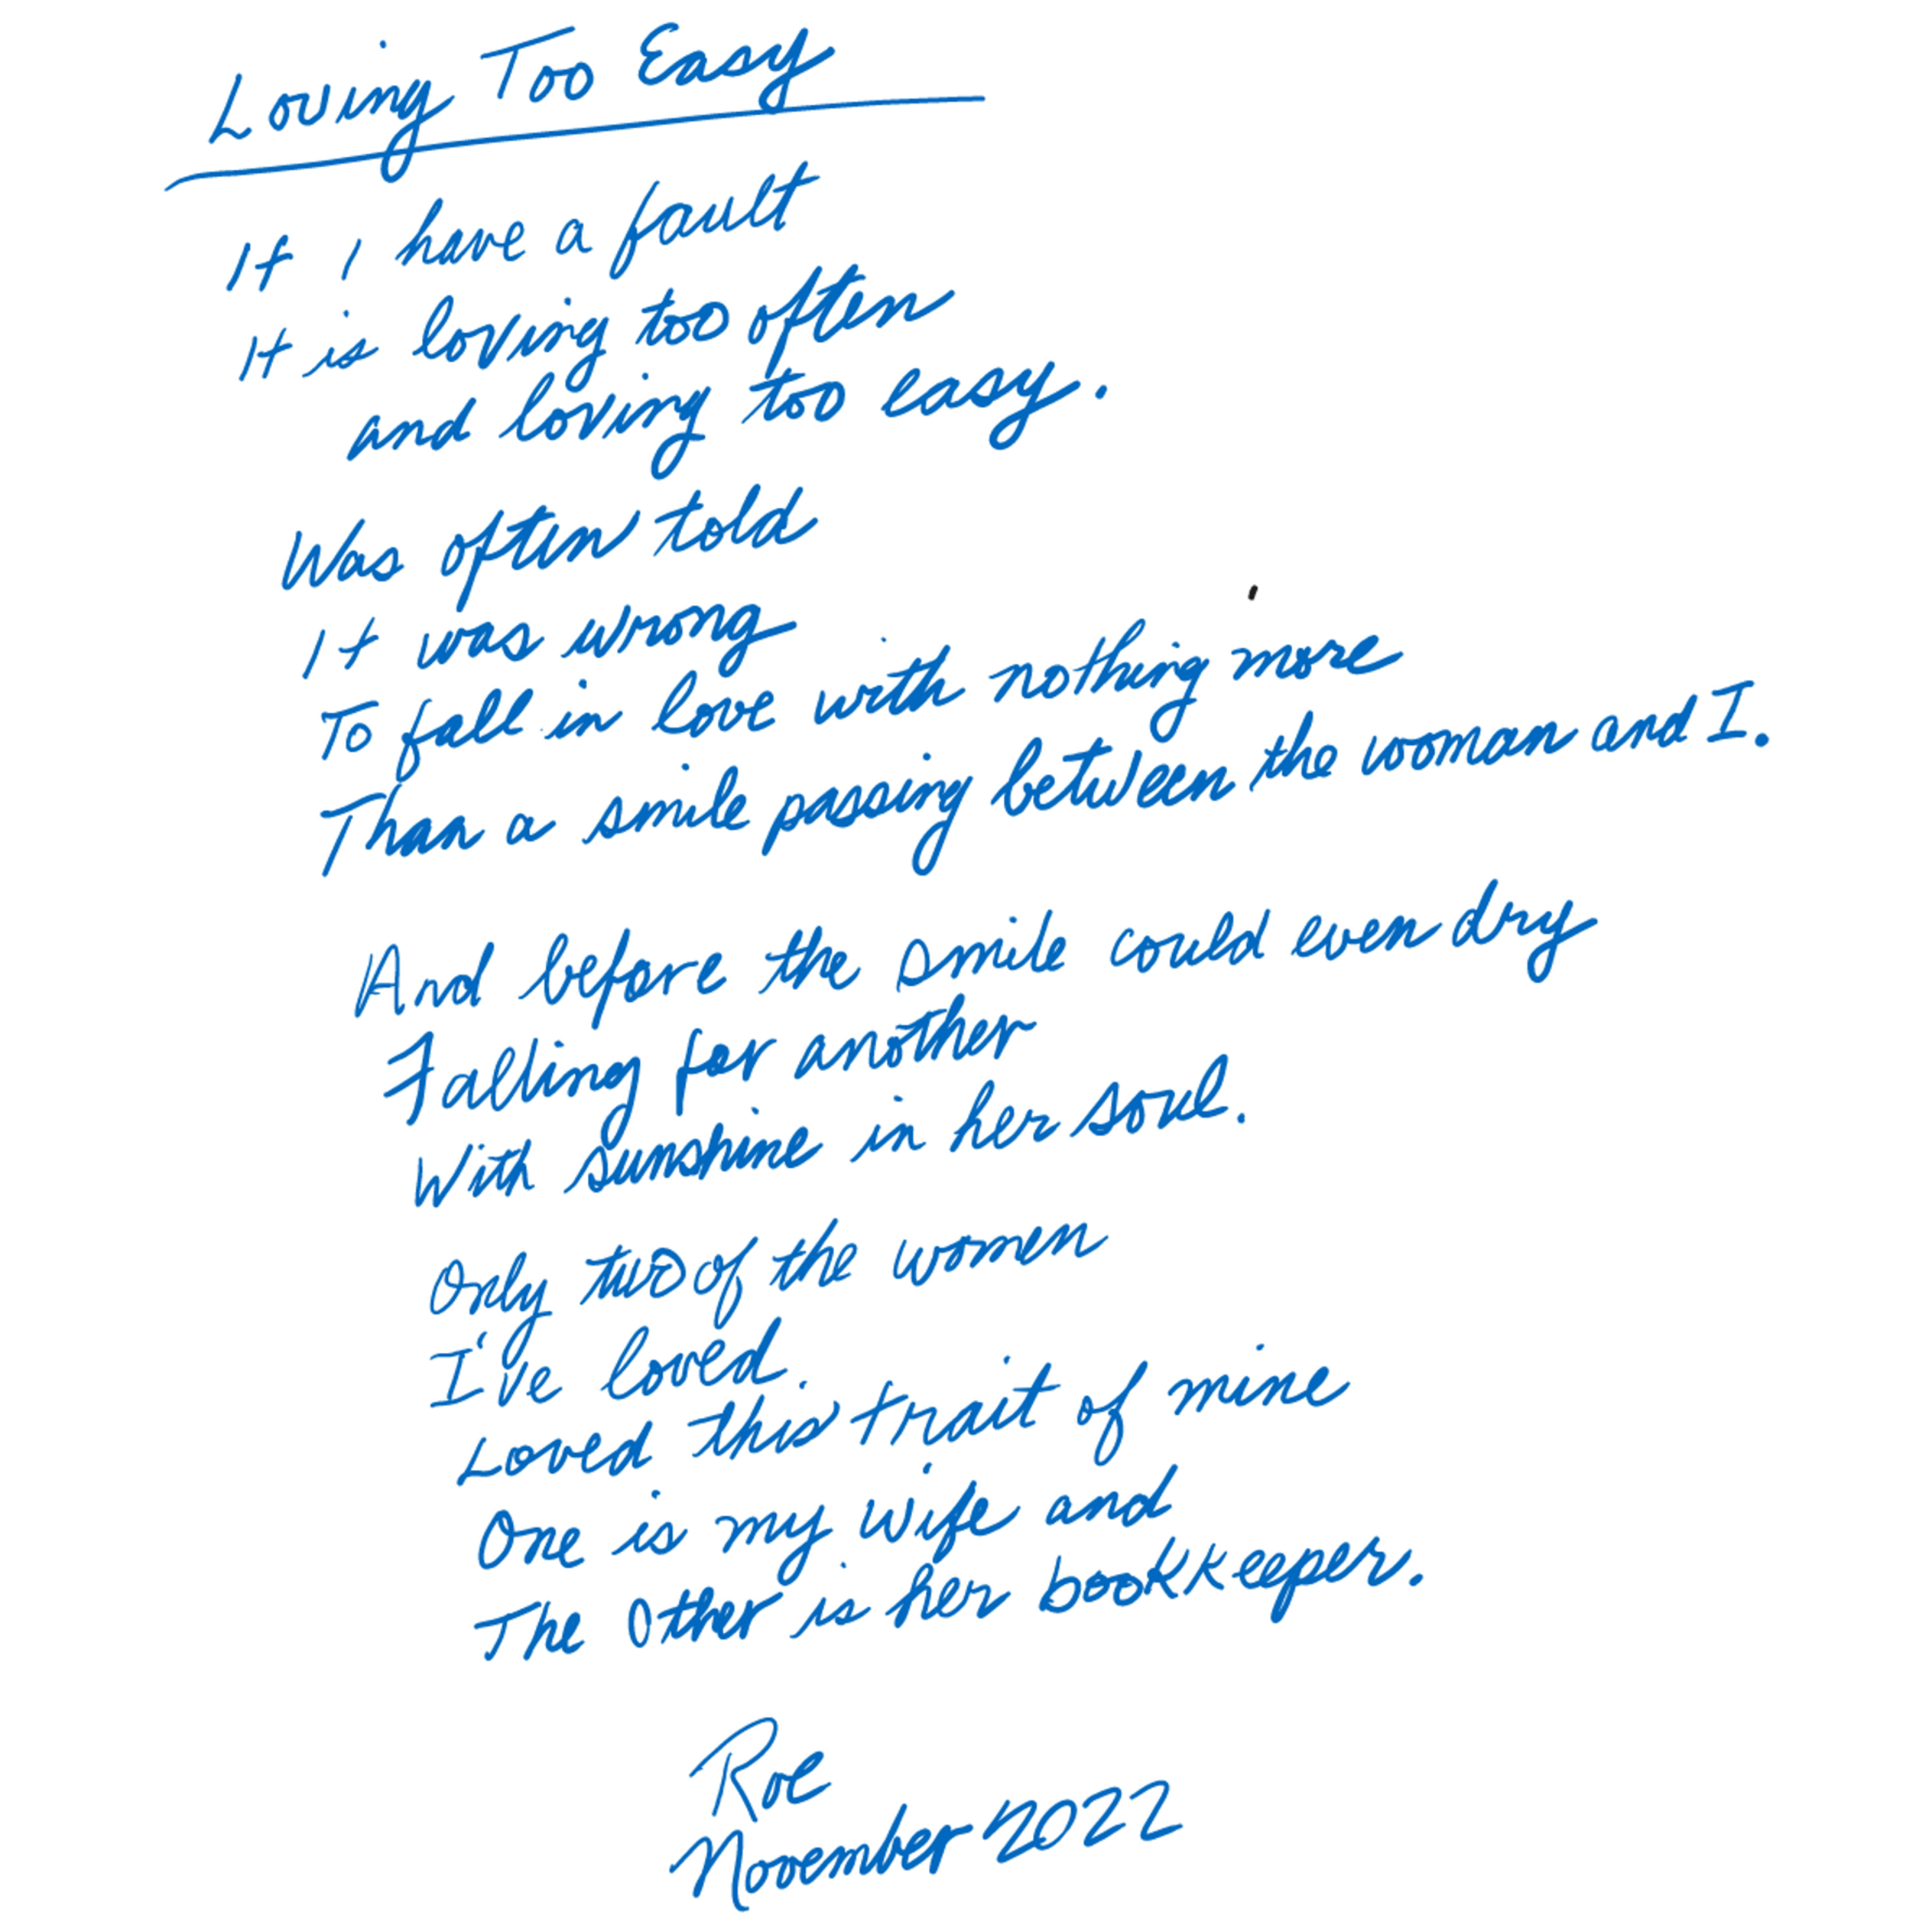 Loving Too Easy
If I have a fault
It is loving too often
and loving too easy.
Was often told
It was wrong
To fall in love with nothing more
Than a smile passing between the woman and I.
And before the smile could even dry
Falling for another
With sunshine in her soul.
Only two of the women
I've loved.
Loved this trait of mine
One is my wife and
The Other is her bookkeeper.
Roe
November 2022